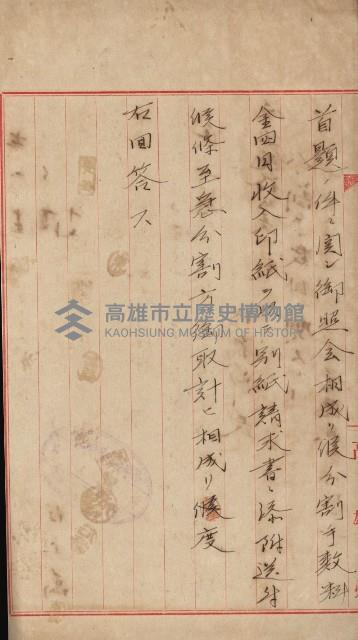 首題ノ件ニ関シ御照会相成リ候分割手数料
金四円収入印紙ヲ以テ別紙請求書ニ添附送付
候條至急分割方御取計ヒ相成リ候度
右回答ス
高雄市立歷史博物館
KAOHSIUNG MUSEUM OF HISTORY